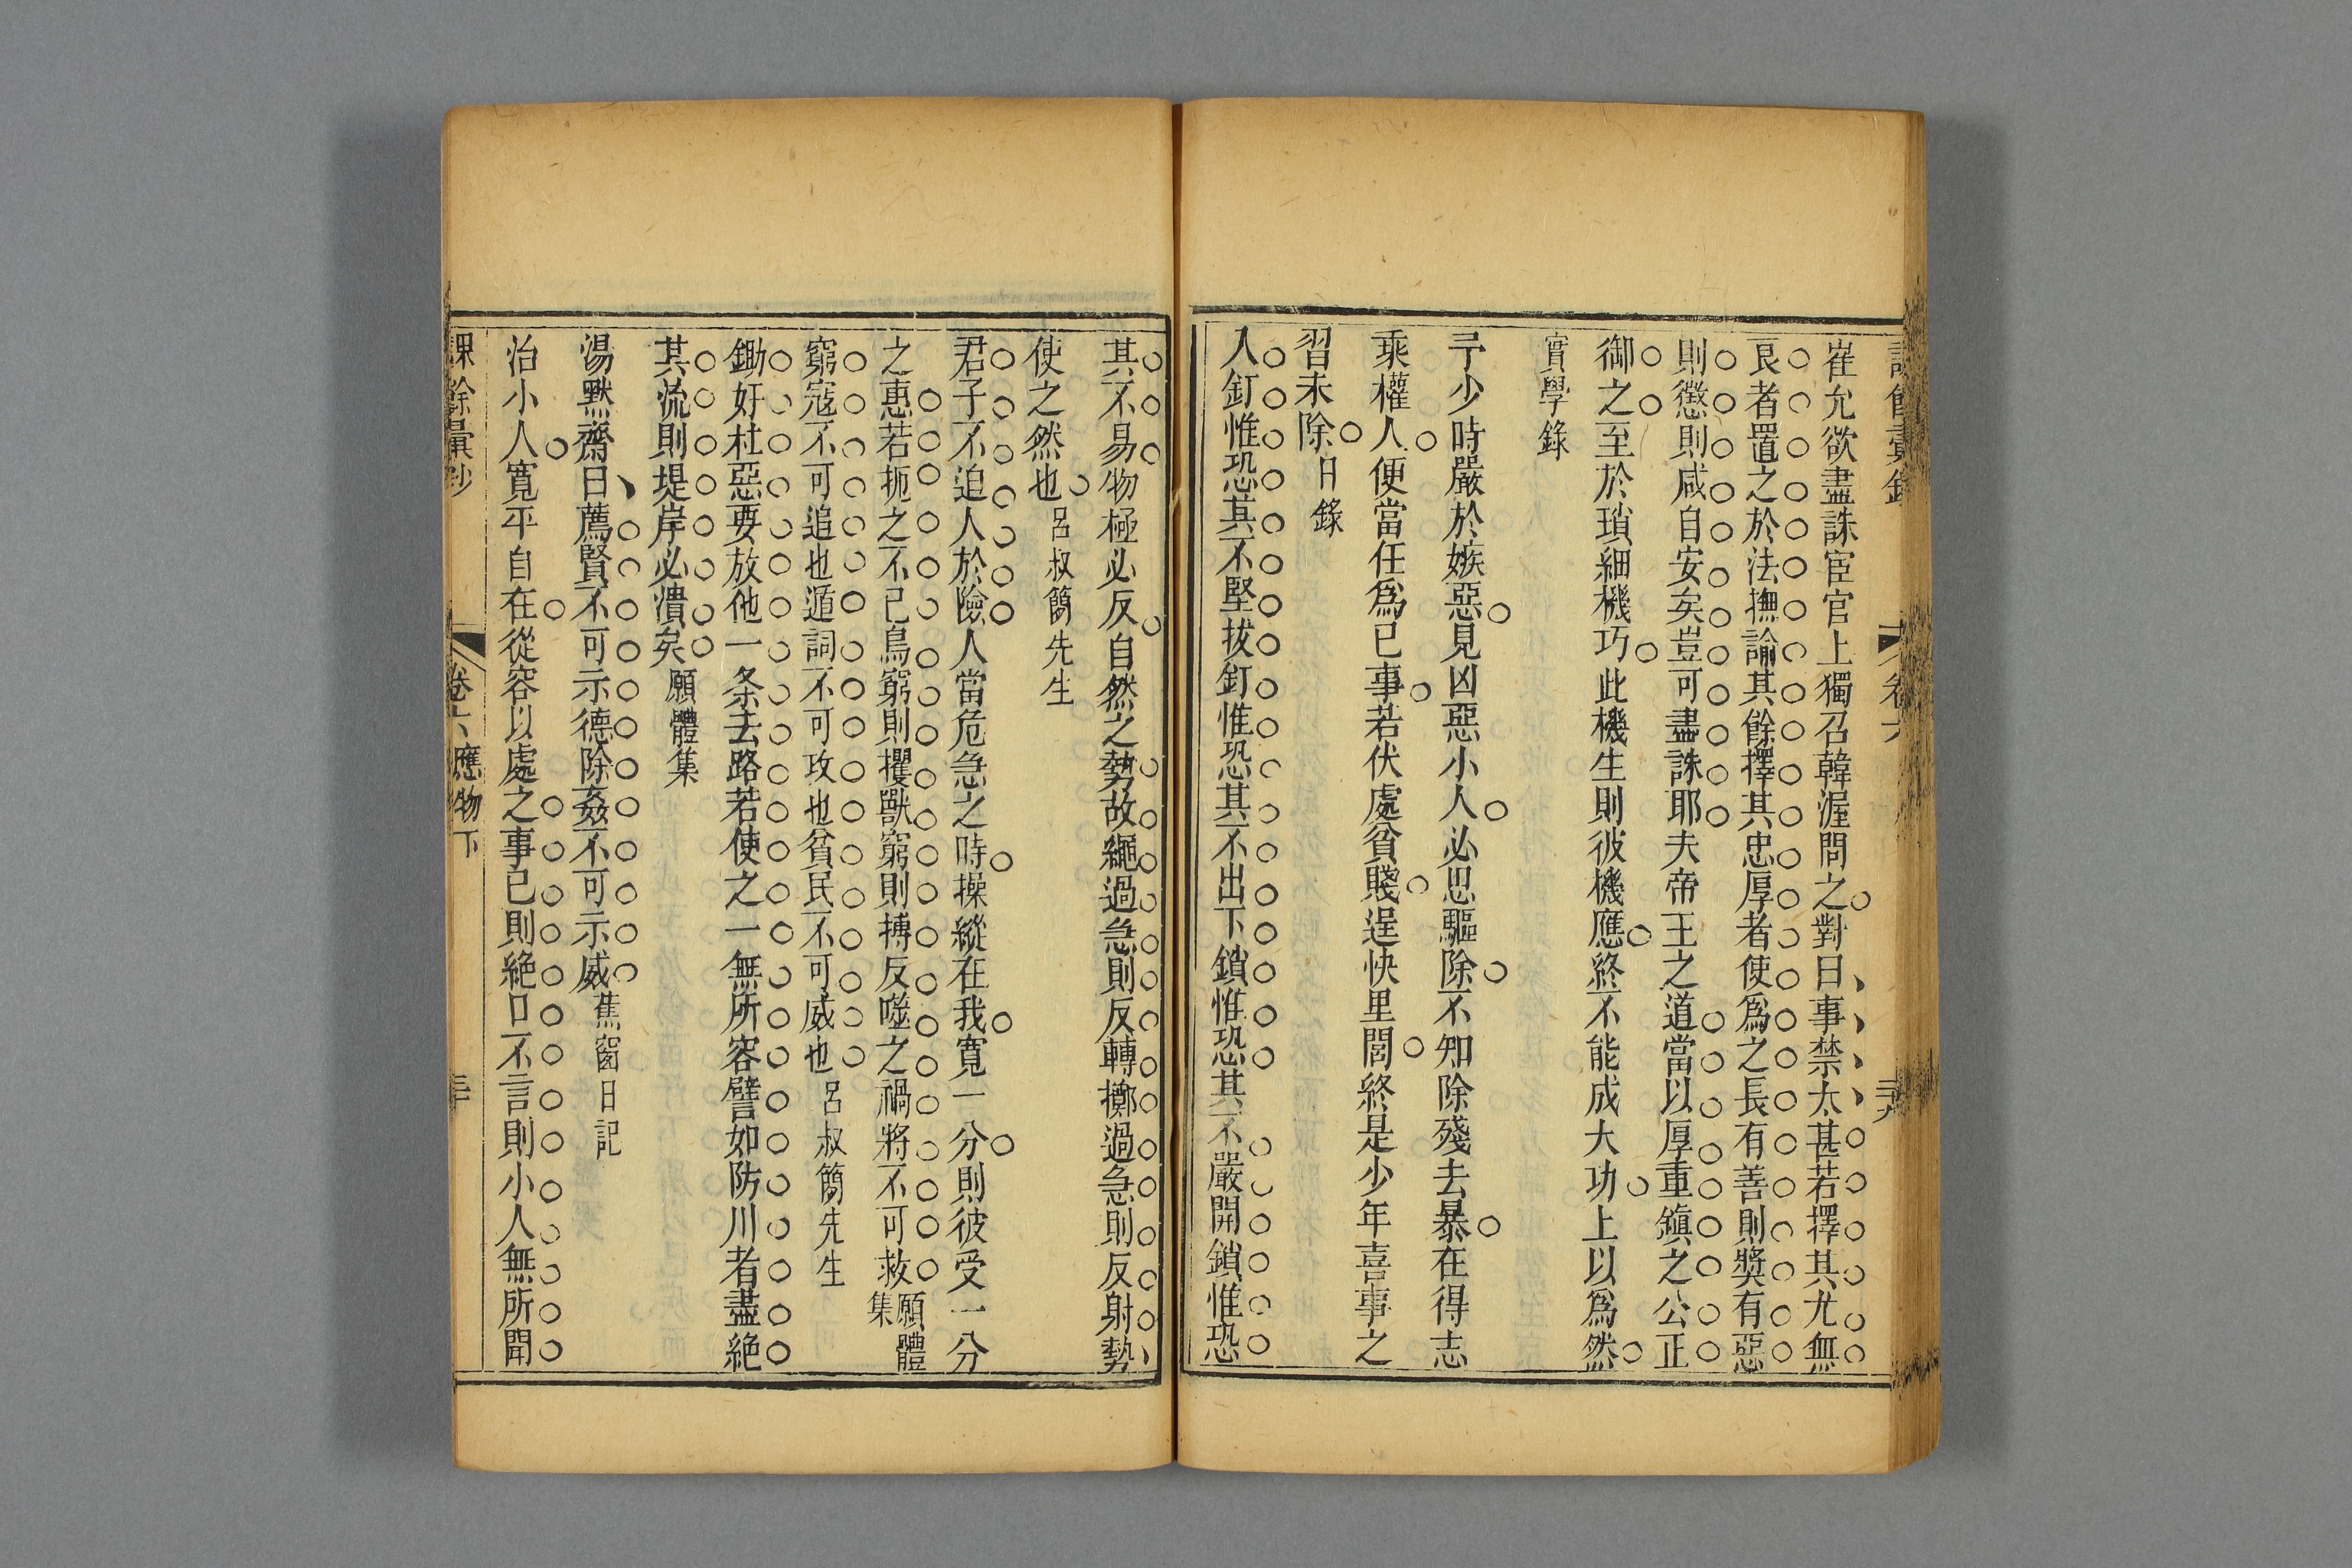 崔允欲盡誅宦官上獨召韓渥問之對曰事禁太甚若擇其尤無
良者置之於法撫諭其餘擇其忠厚者使爲之長有善則奬有惡
則懲則咸自安矣豈可盡誅耶夫帝王之道當以厚重鎭之公正
御之至於瑣細機巧此機生則彼機應終不能成大功上以爲然
實學錄
予少時嚴於嫉惡見凶惡小人必思驅除不知除殘去暴在得志
乘權人便當任爲已事若伏處貧賤逞快里閭終是少年喜事之
習未除日錄
人釘惟恐其不堅拔釘惟恐其不出下鎖惟恐其不嚴開鎖惟恐
其不易物極必反自然之勢故繩過急則反轉擲過急則反射勢
使之然也呂叔簡先生
君子不迫人於險人當危急之時操縱在我寛一分則彼受一分
之惠若扼之不已鳥窮則攫獸窮則搏反噬之禍將不可救願體集
窮寇不可追也遁詞不可攻也貧民不可威也呂叔簡先生
鋤奸杜惡要放他一条去路若使之一無所容譬如防川者盡絶
其流則堤岸必潰矣願體集
湯默齋曰薦賢不可示德除姦不可示威蕉窗日記
治小人寛平自在從容以處之事已則絶口不言則小人無所聞
課餘彙鈔 卷六應物下